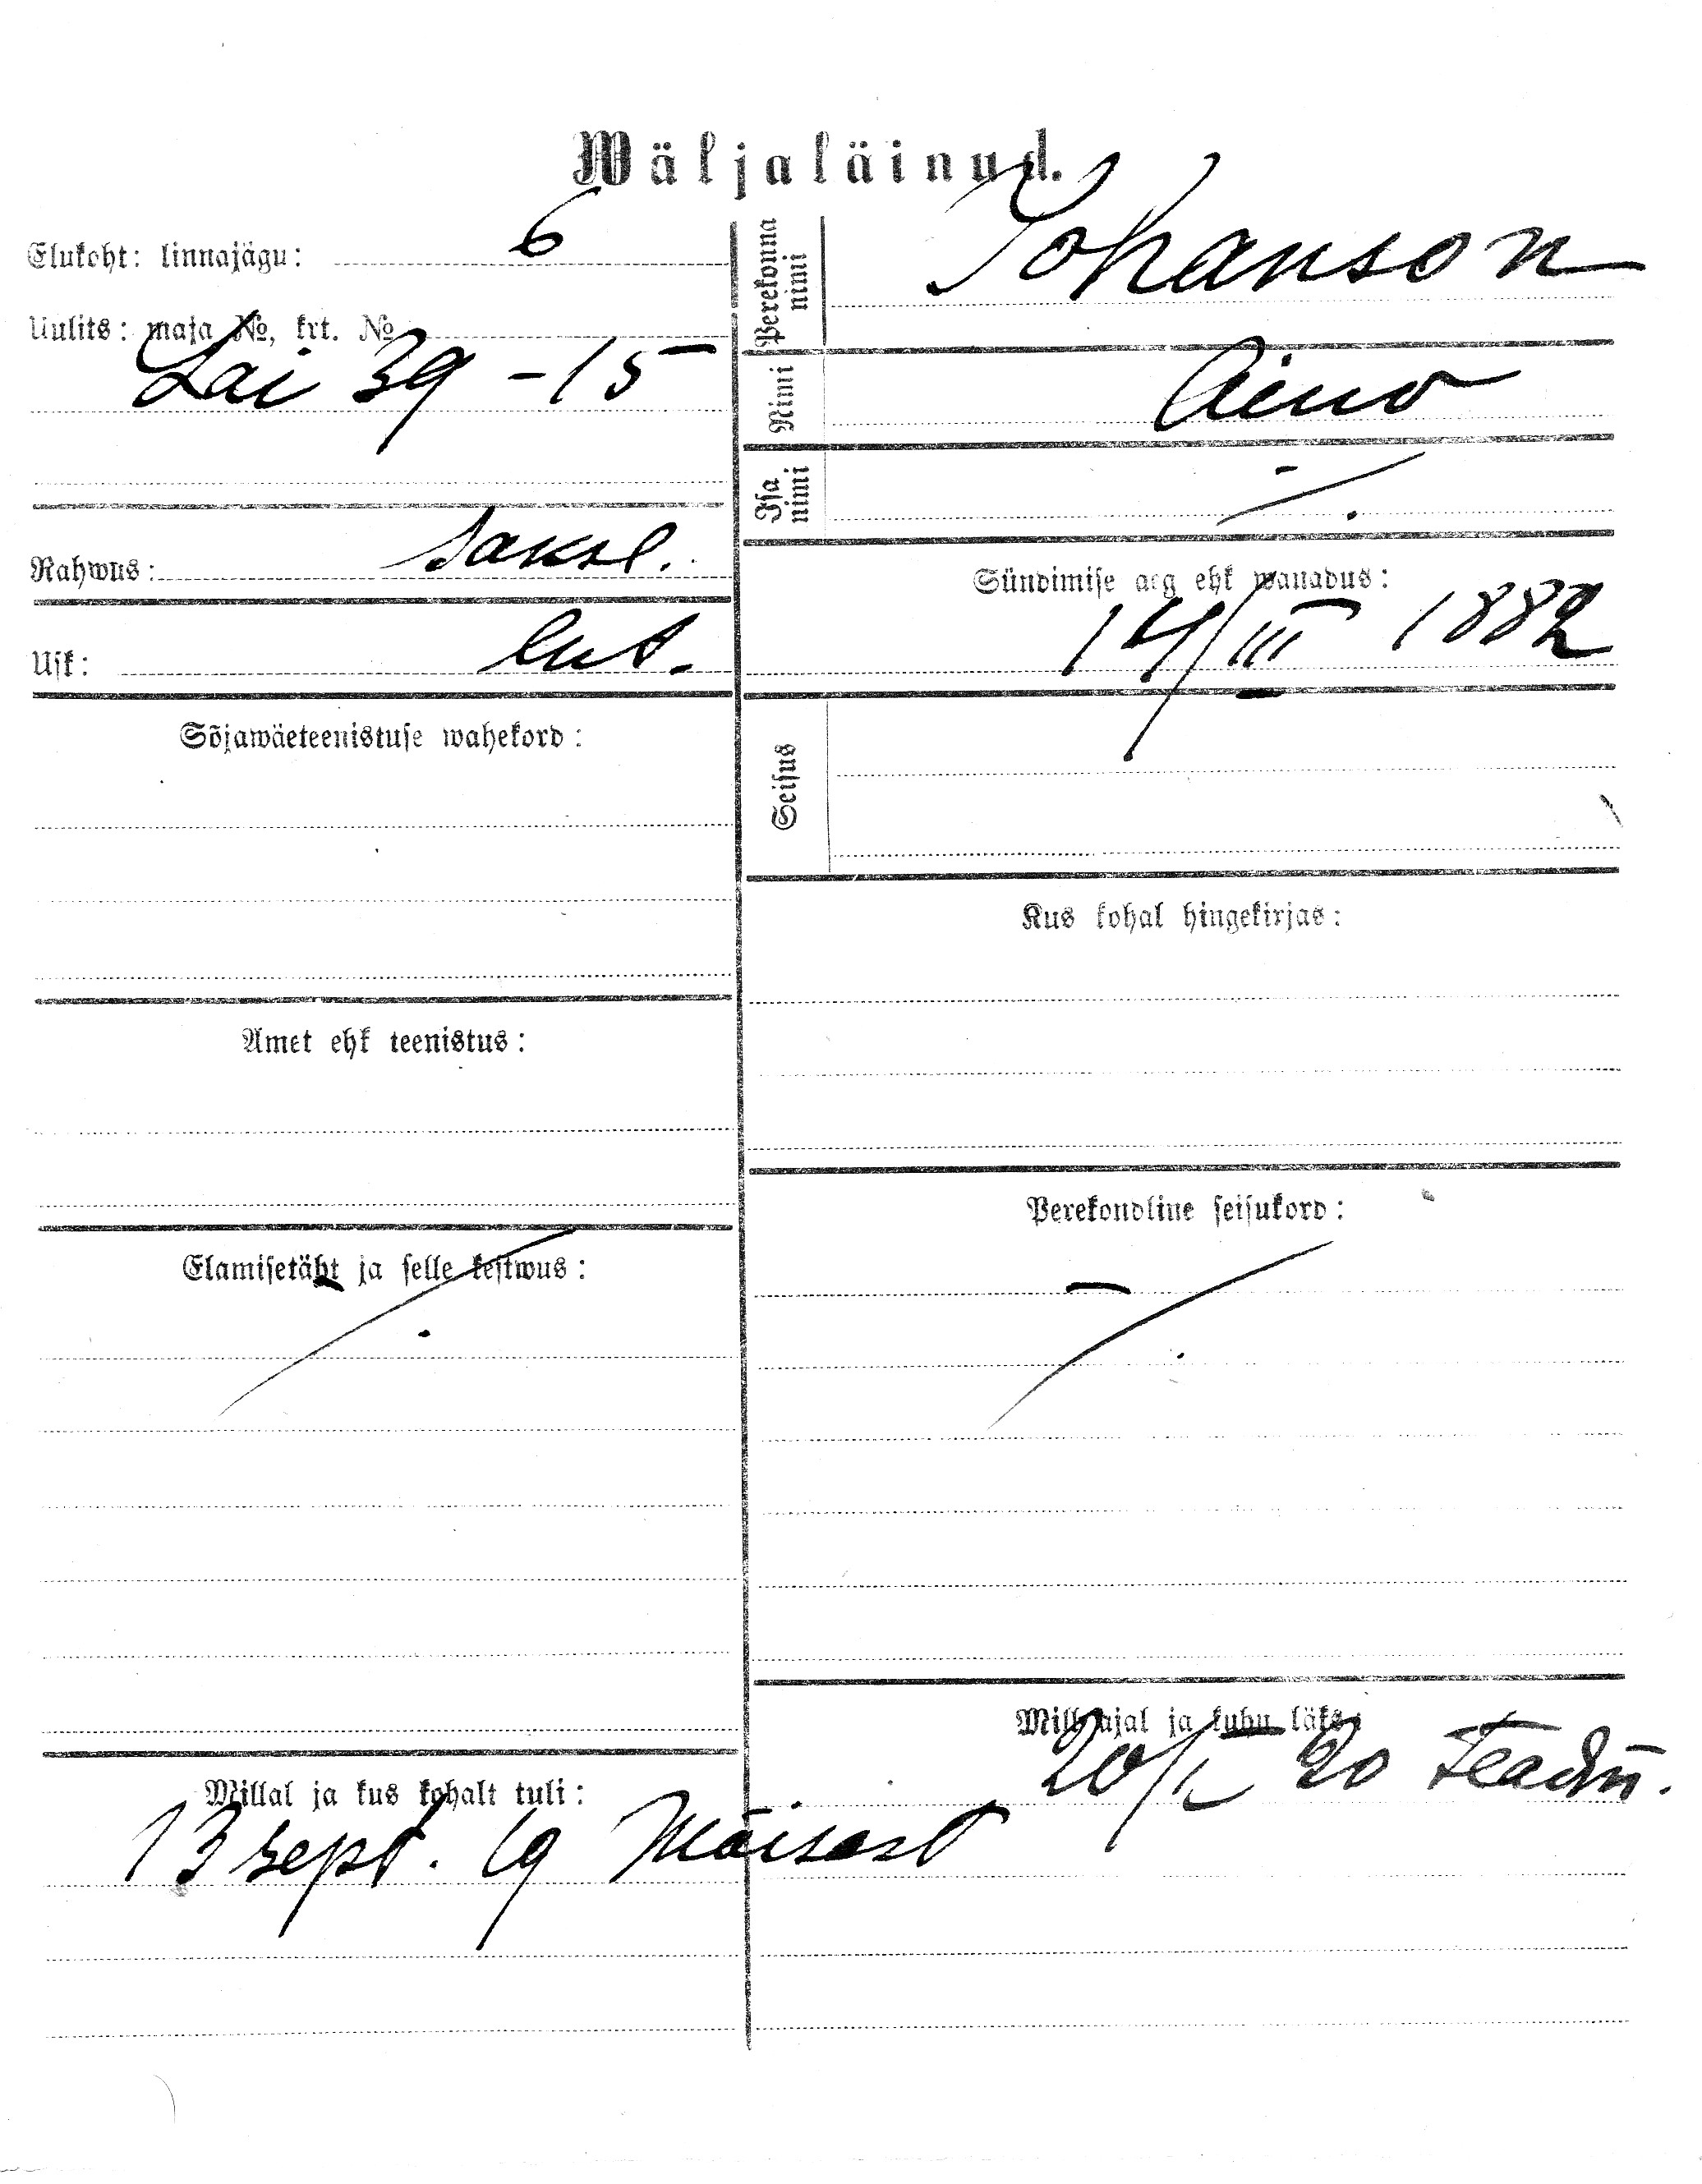 Wäljaläinud.
Elukoht: linnajägu: 6
Uulits: maja №, krt. №
Lai 39 - 15
Rahwus: saksl.
Usk: lut.
Sõjawäeteenistuse wahekord:
Amet ehk teenistus:
Elamisetäht ja selle kestwus:
-/.
Millal ja kus kohalt tuli:
13 sept. 19 Mõisast
Perekonna nimi Johanson
Nimi Aino
Isa nimi -/.
Sündimise aeg ehk wanadus:
14/III 1882
Seisus
Kus kohal hingekirjas:
Perekondline seisukord:
-/.
Mill ajal ja kuhu läks:
20/I 20